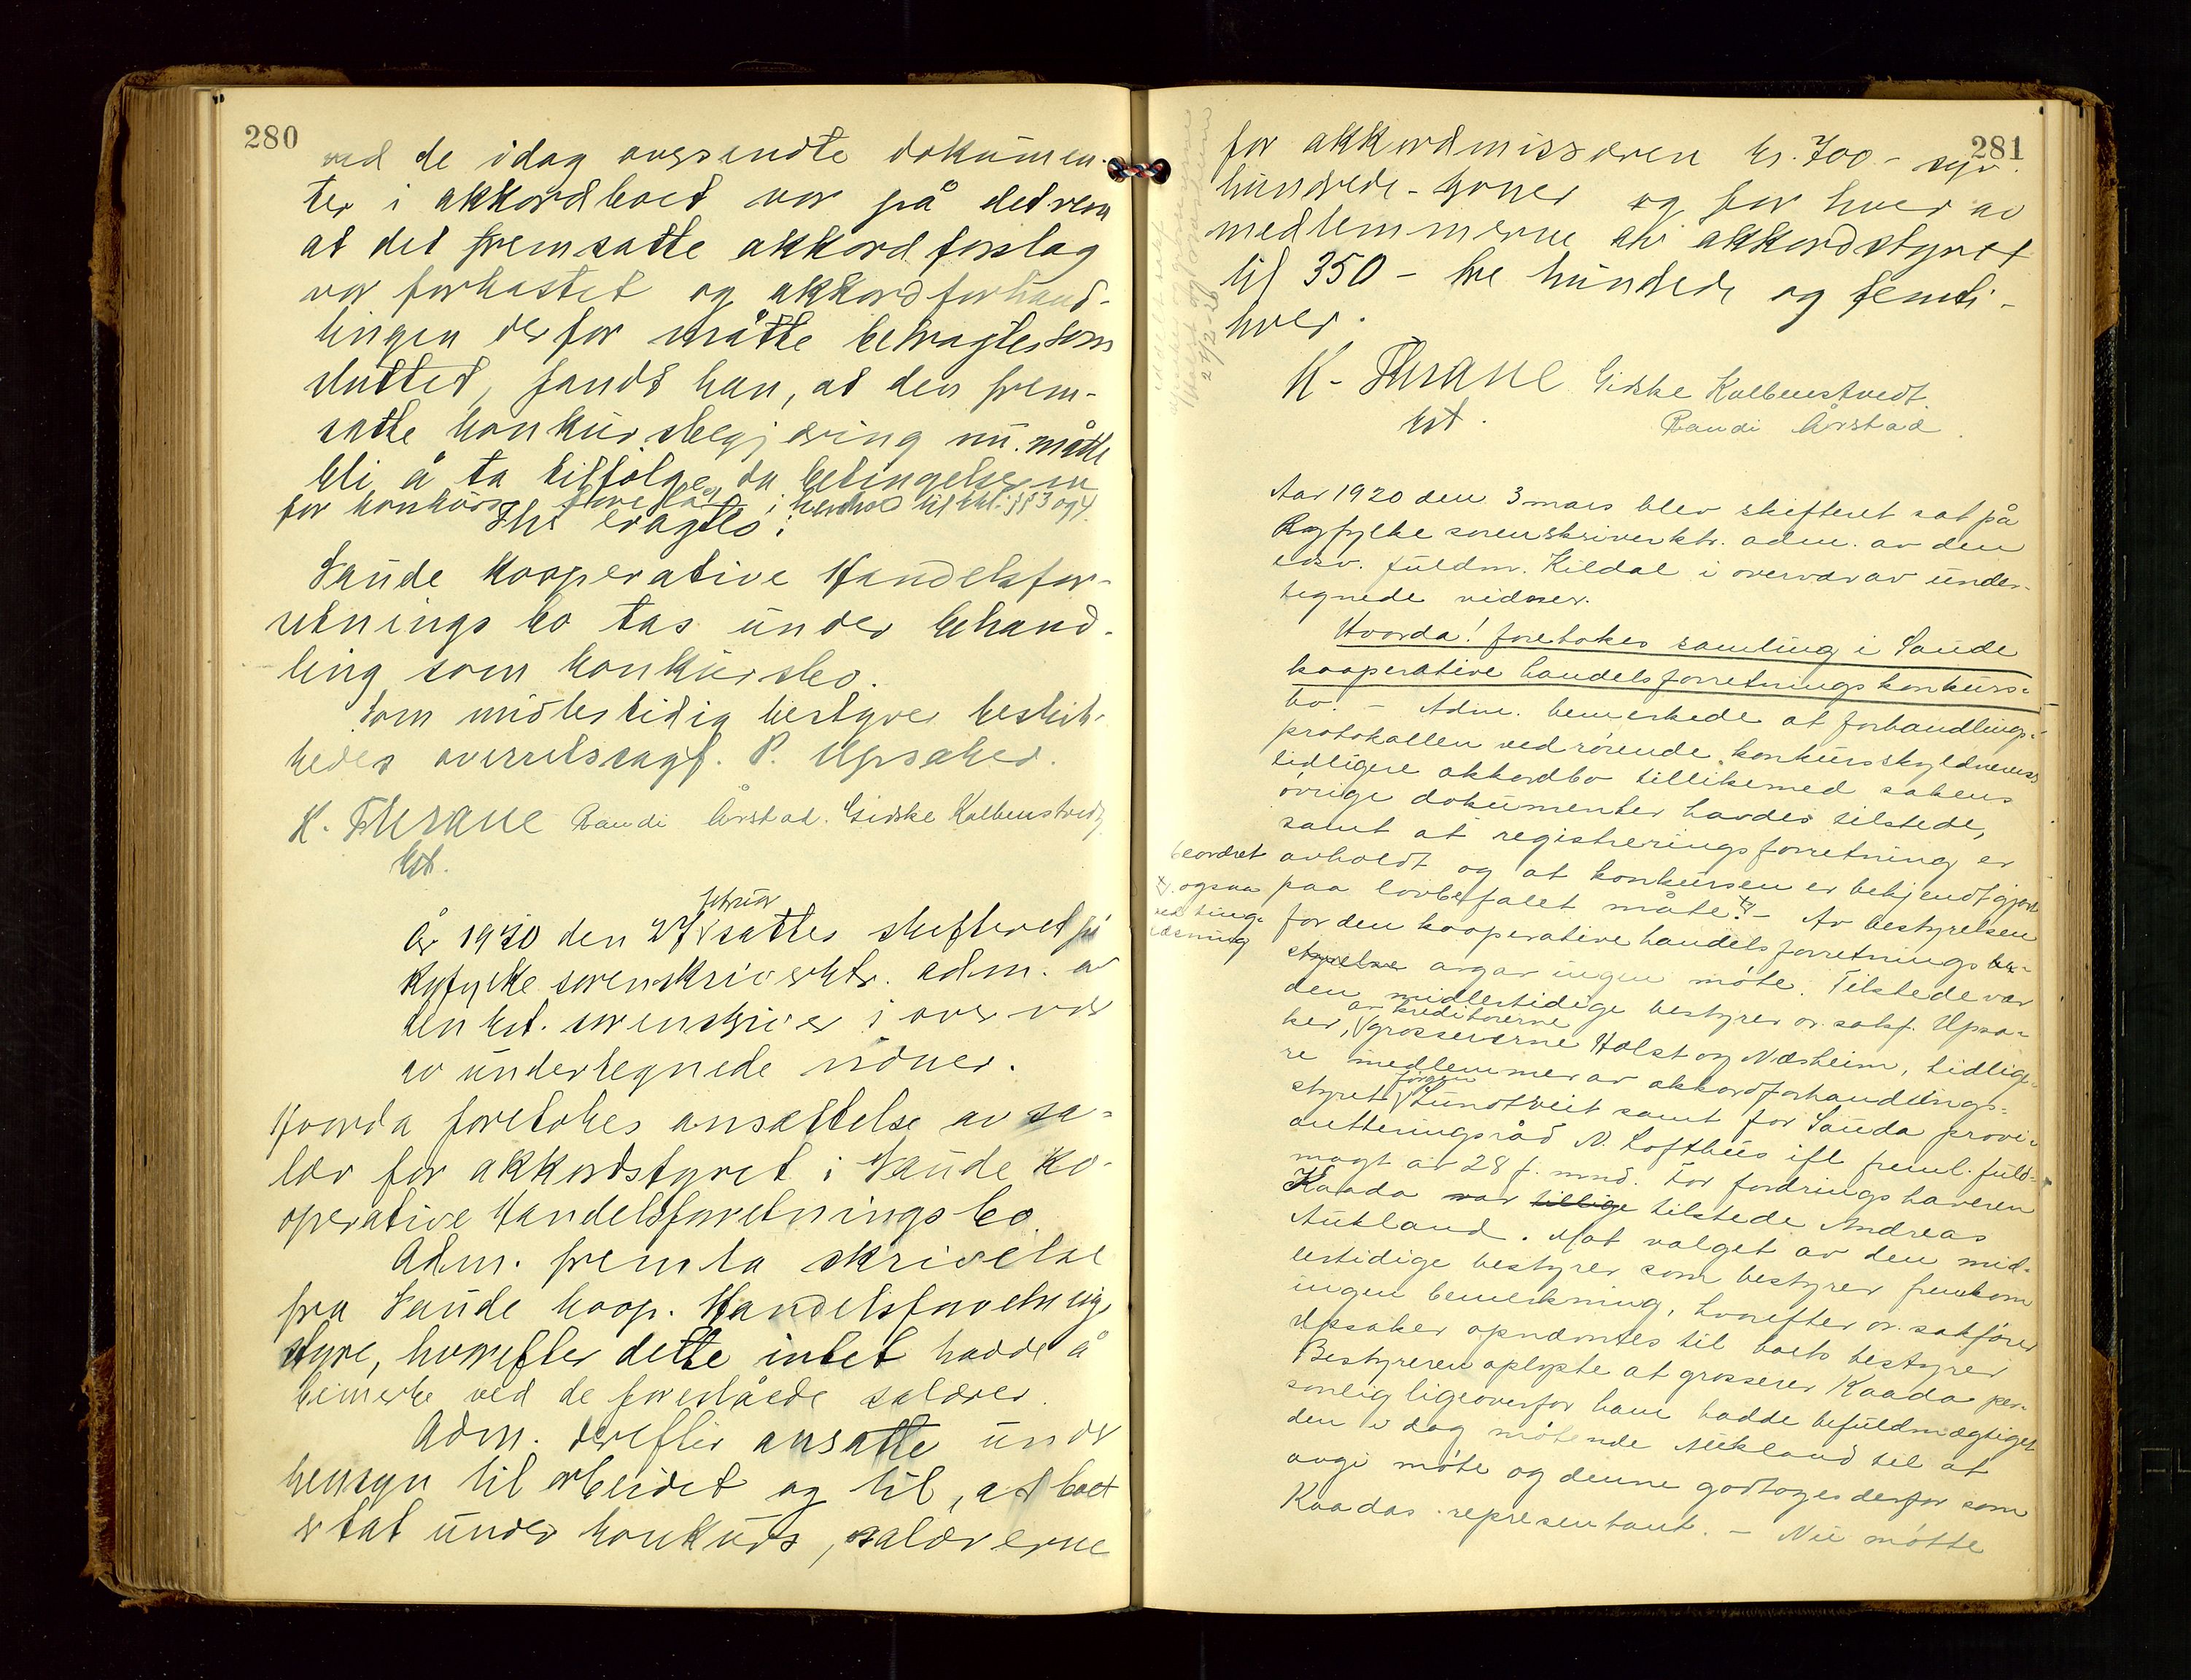 280
ved de idag oversendte dokumen-
ter i akkordboet var på det rene
at det fremsatte akkordforslag
var forkastet og akkordforhand-
lingen derfor måtte betragtes som
sluttet, fandt han, at den frem-
satte konkursbegjæring nu måtte
bli å ta tilfølge, da betingelserne
for konkurs forelå i henhold til kkl. §§ 3 og 4.
Thi eragtes:
Saude kooperative Handelsfor-
retnings bo tas under behand-
ling som konkursbo.
Som midlertidig bestyrer beskik-
kedes overretssagf. P. Upsaker.
K. Thrane Randi Årstad. Gidske Kolbenstvedt
kst.
År 1920 den 27 februar sattes skifteret på
Ryfylke sorenskriverktr. adm. av
den kst. sorenskriver i overvær
av undertegnede vidner.
Hvorda foretokes ansættelse av sa-
lær for akkordstyret i Saude ko-
operative Handelsforretnings bo.
Adm. fremla skrivelse
fra Saude koop. Handelsforretnings
styre, hvorefter dette intet hadde å
bemerke ved de foreslåede salærer.
Adm. derefter ansatte under
hensyn til arbeidet og til, at boet
er tat under konkurs, salærerne
281
for akkordmissæren kr. 700 - syv
hundrede - kroner og for hver av
medlemmerne av akkordstyret
til 350 - tre hundrede og femti -
hver.
K. Thrane Gidske Kolbenstvedt.
kst. Randi Årstad.
Aar 1920 den 3 mars blev skifteret sat på
Ryfylke sorenskriverktr. adm. av den
edsv. fuldm. Kildal i overvær av under-
tegnede vidner.
Hvorda! foretokes samling i Saude
kooperative handelsforretnings konkurs-
bo. - Adm. bemerkede at forhandlings-
protokollen vedrørende konkursskyldnerens
tidligere akkordbo tillikemed sakens
øvrige dokumenter havdes tilstede,
samt at registreringsforretning er
beordret avholdt og at konkursen er bekjendtgjort
ogsaa paa lovbefalet måte. - Av bestyrelsen
ved tinglæsning for den kooperative handelsforretnings be-
styrelse avgav ingen møte. Tilstede var
den midlertidige bestyrer or. sakf. Upsa-
ker, av kreditorerne grossererne Holst og Næsheim, tidlige-
re medlemmer av akkordforhandlings-
styret Jørgen Lundtveit samt for Sauda provi-
anteringsråd N. Lofthus ifl. freml. fuld-
magt av 28 f. mnd. For fordringshaveren
Kaada var tillige tilstede Andreas
Aukland. Mot valget av den mid-
lertidige bestyrer som bestyrer fremkom
ingen bemerkning, hvorefter or. sakfører
Upsaker opnævntes til boets bestyrer
Bestyreren oplyste at grosserer Kaada per-
sonlig ligeoverfor ham hadde befuldmægtiget
den i dag møtende Aukland til at
avgi møte og denne godtoges derfor som
Kaadas representant. - Nu møtte